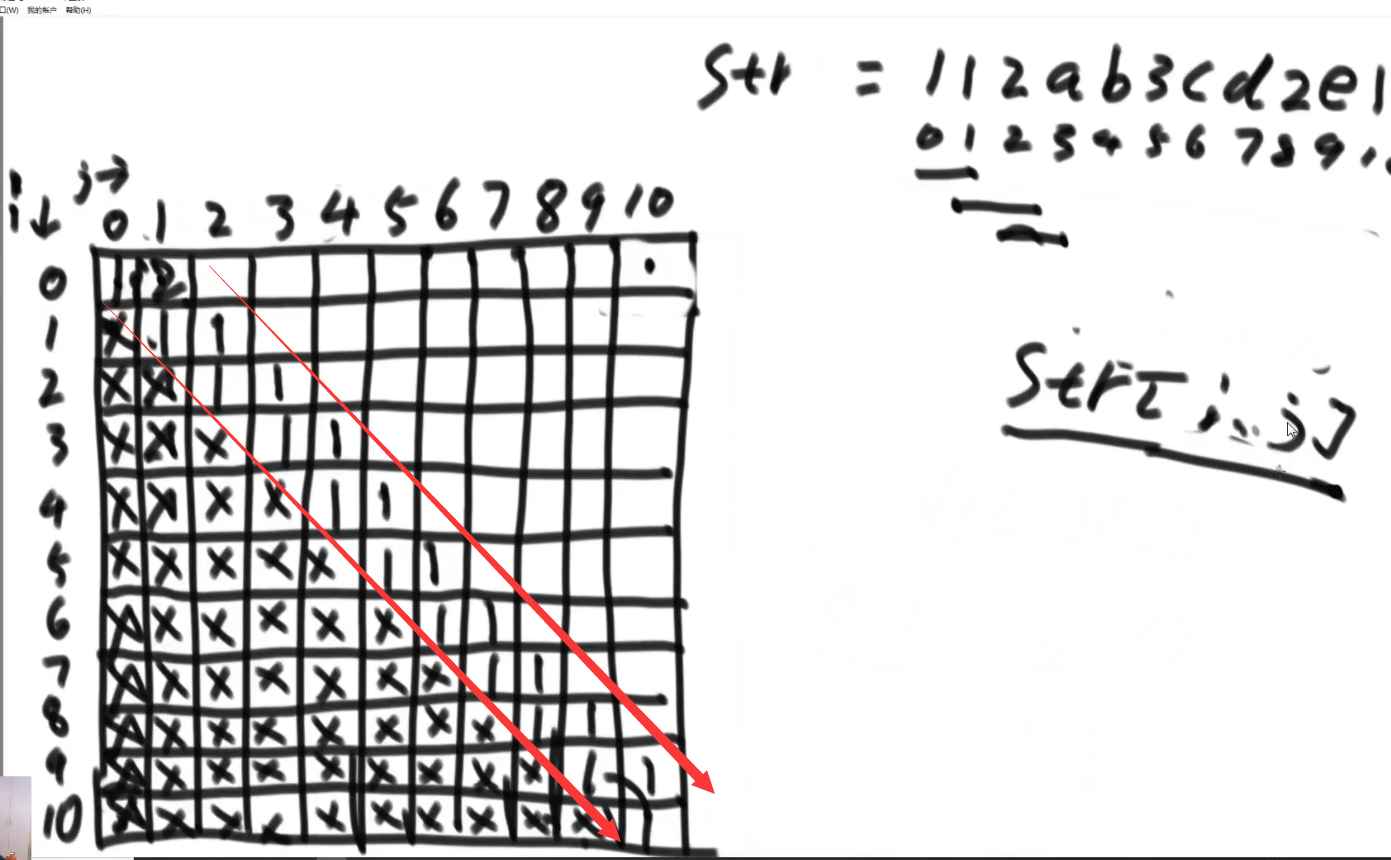 口(W) 我的帐户 帮助(H)
Str = 112ab3cd2e1
0 1 2 3 4 5 6 7 8 9 10
i↓ j→
0 1 2 3 4 5 6 7 8 9 10
0 1 2 .
1 X 1 1
2 X X 1 1
3 X X X 1 1
4 X X X X 1 1
5 X X X X X 1 1
6 X X X X X X 1 1
7 X X X X X X X 1 1
8 X X X X X X X X 1 1
9 X X X X X X X X X 1 1
10 X X X X X X X X X X 1
Str[i..j]